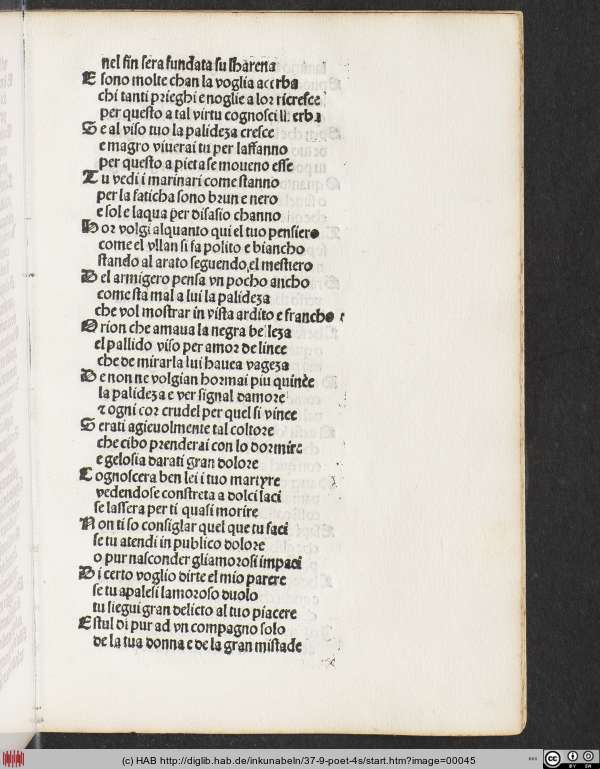 nel fin sera fundata su lharena
E sono molte chan la voglia acerba
chi tanti prieghi e noglie a lor ricresce
per questo a tal virtu cognosci li erba
Se al viso tuo la palideza cresce
e magro viuerai tu per laffanno
per questo a pieta se moueno esse
Tu vedi i marinari come stanno
per la faticha sono brun e nero
e sol e laqua per disasio channo
Hor volgi alquanto qui el tuo pensiero
come el vllan si fa polito e biancho
stando al arato seguendo el mestiero
Del armigero pensa vn pocho ancho
come sta mal a lui la palideza
che vol mostrar in vista ardito e francho
Orion che amaua la negra belleza
el pallido viso per amor de lince
che de mirarla lui hauea vageza
De non ne volgian hormai piu quince
la palideza e ver signal damore
⁊ ogni cor crudel per quel si vince
Serati agieuolmente tal coltore
che cibo prenderai con lo dormire
e gelosia darati gran dolore
Cognoscera ben lei i tuo martyre
vedendose constreta a dolci laci
se lassera per ti quasi morire
Non ti so consiglar quel que tu faci
se tu atendi in publico dolore
o pur nasconder gliamorosi impaci
Di certo voglio dirte el mio parere
se tu apalesi lamoroso duolo
tu siegui gran delicto al tuo piacere
Estul di pur ad vn compagno solo
de la tua donna e de la gran mistade
(c) HAB http://diglib.hab.de/inkunabeln/37-9-poet-4s/start.htm?image=00045